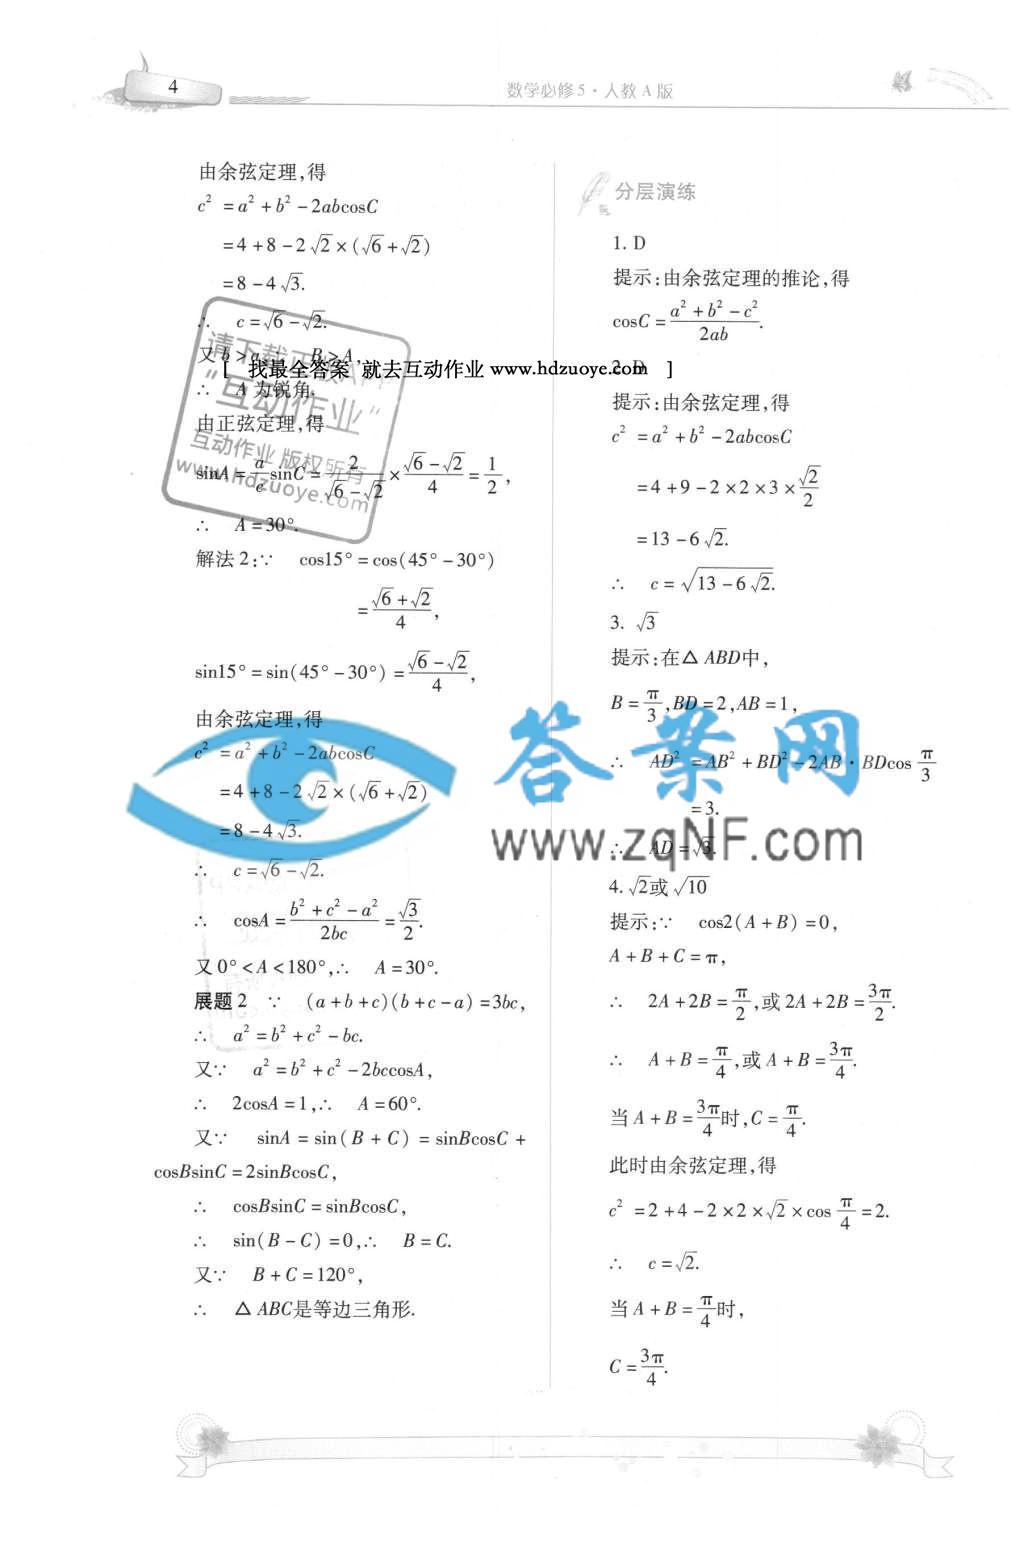 4
数学必修5·人教A版
由余弦定理,得
c² = a² + b² - 2abcosC
= 4 + 8 - 2√2 × (√6 + √2)
= 8 - 4√3.
∴ c = √6 - √2.
又 b > a, B > A,
[ 找最全答案 就去互动作业 www.hdzuoye.com ]
∴ A 为锐角.
由正弦定理,得
sinA = a/c sinC = 2/(√6 - √2) × (√6 - √2)/4 = 1/2,
∴ A = 30°.
请下载正版
"互动作业"
互动作业 版权所有
www.hdzuoye.com
解法2:∵ cos15° = cos(45° - 30°)
= (√6 + √2)/4,
sin15° = sin(45° - 30°) = (√6 - √2)/4,
由余弦定理,得
c² = a² + b² - 2abcosC
= 4 + 8 - 2√2 × (√6 + √2)
= 8 - 4√3.
∴ c = √6 - √2.
∴ cosA = (b² + c² - a²)/2bc = √3/2.
又 0° < A < 180°,∴ A = 30°.
展题2 ∵ (a + b + c)(b + c - a) = 3bc,
∴ a² = b² + c² - bc.
又∵ a² = b² + c² - 2bccosA,
∴ 2cosA = 1,∴ A = 60°.
又∵ sinA = sin(B + C) = sinBcosC +
cosBsinC = 2sinBcosC,
∴ cosBsinC = sinBcosC,
∴ sin(B - C) = 0,∴ B = C.
又∵ B + C = 120°,
∴ △ABC是等边三角形.
分层演练
1. D
提示:由余弦定理的推论,得
cosC = (a² + b² - c²)/2ab.
2. D
提示:由余弦定理,得
c² = a² + b² - 2abcosC
= 4 + 9 - 2 × 2 × 3 × √2/2
= 13 - 6√2.
∴ c = √(13 - 6√2).
3. √3
提示:在△ABD中,
B = π/3, BD = 2, AB = 1,
∴ AD² = AB² + BD² - 2AB · BDcos π/3
= 3.
∴ AD = √3.
答案网
www.zqNF.com
4. √2或√10
提示:∵ cos2(A + B) = 0,
A + B + C = π,
∴ 2A + 2B = π/2,或 2A + 2B = 3π/2.
∴ A + B = π/4,或 A + B = 3π/4.
当 A + B = 3π/4时, C = π/4.
此时由余弦定理,得
c² = 2 + 4 - 2 × 2 × √2 × cos π/4 = 2.
∴ c = √2.
当 A + B = π/4时,
C = 3π/4.